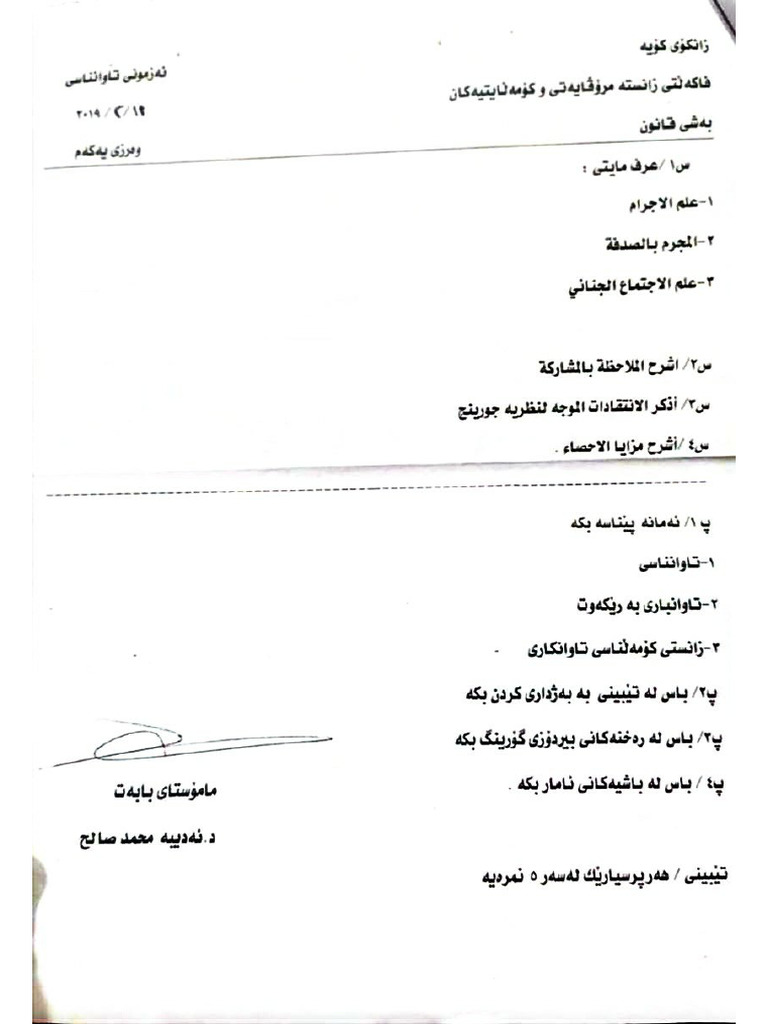 زانکۆی کۆیە
فاکەڵتی زانستە مرۆڤایەتی و کۆمەڵایتیەکان
بەشی قانون
ئەزمونی تاوانناسی
٢٠١٩/٢/١٢
وەرزی یەکەم
س١/عرف مایتی :
١-علم الاجرام
٢-المجرم بالصدفة
٣-علم الاجتماع الجنائي
س٢/ اشرح الملاحظة بالمشاركة
س٣/ أذكر الانتقادات الموجه لنظریه جورینج
س٤/أشرح مزایا الاحصاء .
پ١/ ئەمانە پێناسە بکە
١-تاوانناسی
٢-تاوانباری بە رێکەوت
٣-زانستی کۆمەڵناسی تاوانکاری
پ٢/ باس لە تێبینی بە بەژداری کردن بکە
پ٣/ باس لە رەخنەکانی بیردۆزی گۆرینگ بکە
پ٤/ باس لە باشیەکانی ئامار بکە .
مامۆستای بابەت
د.ئەدیبە محمد صالح
تێبینی / هەرپرسیارێك لەسەر ٥ نمرەیە